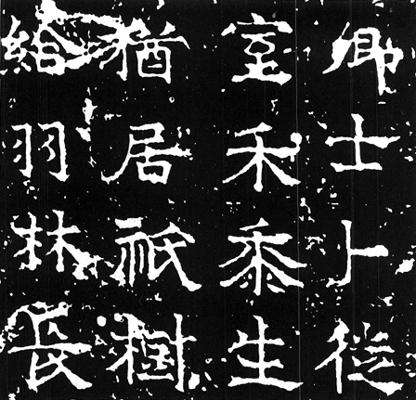 卿士卜從
室禾黍生
猶居祇樹
給羽林長